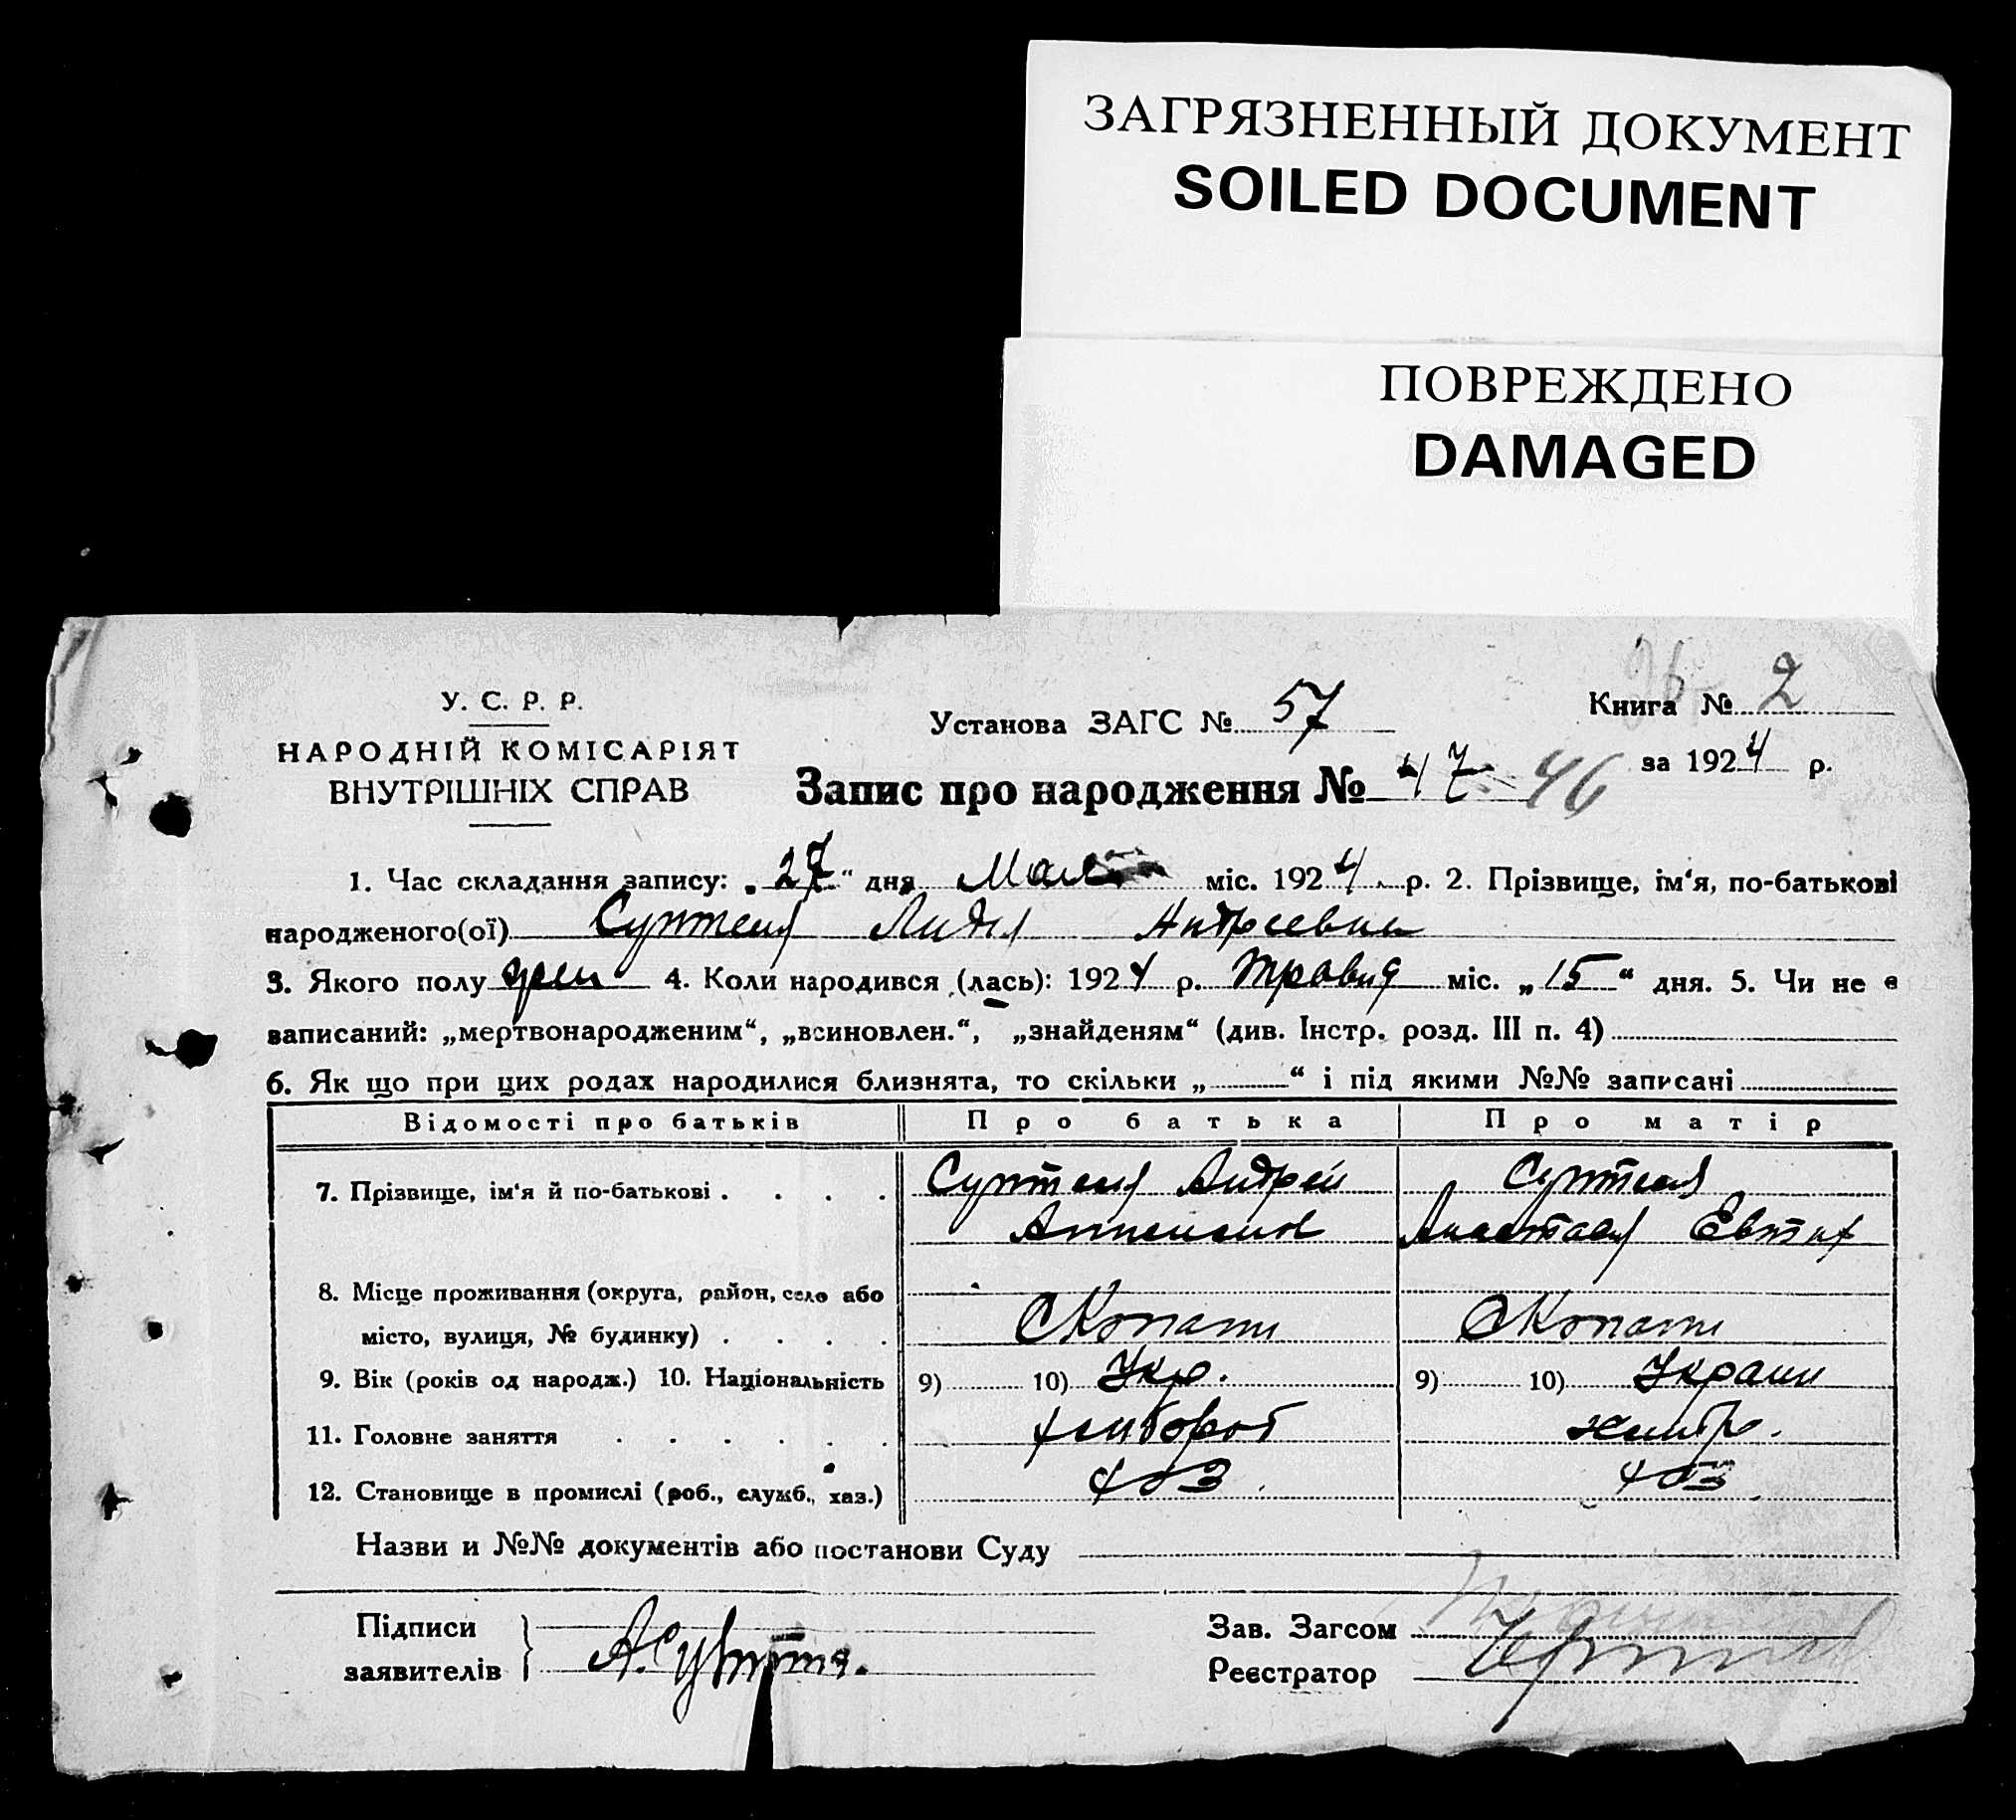 ЗАГРЯЗНЕННЫЙ ДОКУМЕНТ
SOILED DOCUMENT
ПОВРЕЖДЕНО
DAMAGED
У. С. Р. Р.
НАРОДНІЙ КОМІСАРІЯТ
ВНУТРІШНІХ СПРАВ
Установа ЗАГС № 57
Книга № 2
за 1924 р.
Запис про народження № 47 46
1. Час складання запису: „27“ дня Мая міс. 1924 р. 2. Прізвище, ім‘я, по-батькові
народженого(ої) Лидия Андреевна
3. Якого полу жен 4. Коли народився (лась): 1924 р. Травня міс. „15“ дня. 5. Чи не є
записаний: „мертвонародженим“, „всиновлен.“, „знайденям“ (див. Інстр. розд. III п. 4)
6. Як що при цих родах народилися близнята, то скільки „ “ і під якими №№ записані
Відомості про батьків Про батька Про матір
7. Прізвище, ім‘я й по-батькові Андрей
Анастасия Евтих
8. Місце проживання (округа, район, село або
місто, вулиця, № будинку) С Копани С Копани
9. Вік (років од народж.) 10. Національність 9) 10) Укр. 9) 10) Украин
11. Головне заняття хлибороб хлибр.
12. Становище в промислі (роб., служб., хаз.) хоз хоз
Назви и №№ документів або постанови Суду
Підписи
заявителів
Зав. Загсом
Реєстратор